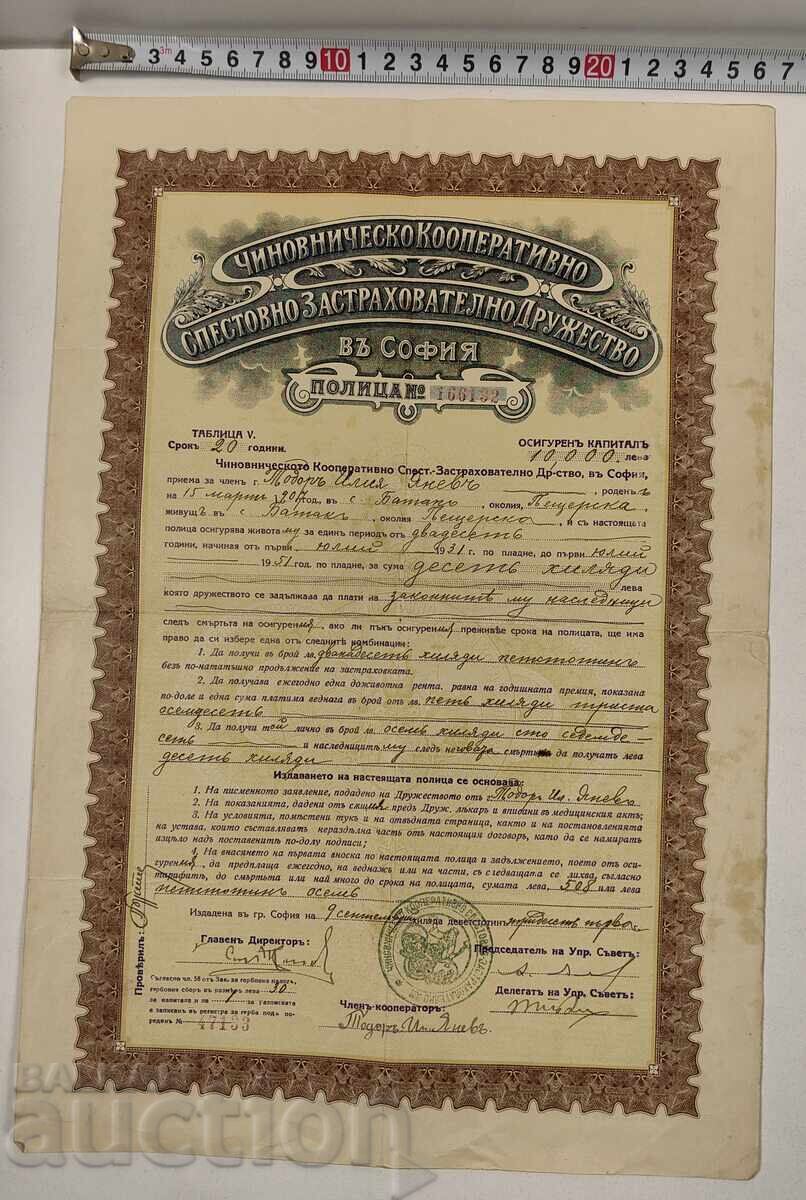 3 3m 4 5 6 7 8 9 10 1 2 3 4 5 6 7 8 9 20 1 2 3 4 5 6 7
ЧИНОВНИЧЕСКО КООПЕРАТИВНО
СПЕСТОВНО ЗАСТРАХОВАТЕЛНО ДРУЖЕСТВО
ВЪ СОФИЯ
ПОЛИЦА № 166132
ТАБЛИЦА V. ОСИГУРЕНЪ КАПИТАЛЪ
Срокъ 20 години. 10,000 лева
Чиновническото Кооперативно Спест.-Застрахователно Др-ство, въ София,
приема за членъ г. Тодоръ Илия Яневъ, роденъ
на 15 мартъ 907 год., въ с. Батакъ, околия, Пещерска,
живущъ въ с Батакъ, околия Пещерска, и съ настоящата
полица осигурява живота му за единъ периодъ отъ двадесеть
години, начиная отъ първи юлий 1931 г. по пладне, до първи юлий
1951 год. по пладне, за сума десеть хиляди
лева
която дружеството се задължава да плати на законнитѣ му наследници
следъ смъртьта на осигурения, ако ли пъкъ осигурения преживѣе срока на полицата, ще има
право да си избере една отъ следнитѣ комбинации:
1. Да получи въ брой лв. дванадесеть хиляди петстотинъ
безъ по-нататъшно продължение на застраховката.
2. Да получава ежегодно една доживотна рента, равна на годишната премия, показана
по-доле и една сума платима веднага въ брой отъ лв. петь хиляди триста
осемдесеть
3. Да получи той лично въ брой лв. осемь хиляди сто седемде-
сеть и наследницитѣ му следъ неговата смърть да получатъ лева
десеть хиляди
Издаването на настоящата полица се основава:
1. На писменното заявление, подадено на Дружеството отъ г. Тодоръ Ил. Яневъ
2. На показанията, дадени отъ сѫщия предъ Друж. лѣкарь и вписани въ медицинския актъ;
3. На условията, помѣстени тукъ и на отвъдната страница, както и на постановленията
на устава, които съставляватъ нераздѣлна часть отъ настоящия договоръ, като да се намиратъ
изцѣло надъ поставенитѣ по-долу подписи;
4. На внасянето на първата вноска по настоящата полица и задължението, поето отъ оси-
гурения, да предплаща ежегодно, на веднажъ или на части, съ следващата се лихва, съгласно
тарифата, до смъртьта или най много до срока на полицата, сумата лева, 508 или лева
петстотинъ осемь
Издадена въ гр. София на 9 септемврий хиляда деветстотинъ тридесеть първа
Главенъ Директоръ: Председатель на Упр. Съветъ:
Провѣрилъ:
Съгласно чл. 58 отъ Зак. за гербовия налогъ,
гербовия сборъ въ размѣръ лева 30
за капитала и лв. 1 за уложската
е записанъ въ регистра за герба подъ по-
реденъ № 47133
Делегатъ на Упр. Съветъ:
Членъ-кооператоръ:
Тодоръ Ил. Яневъ
БАЛКАН
auction